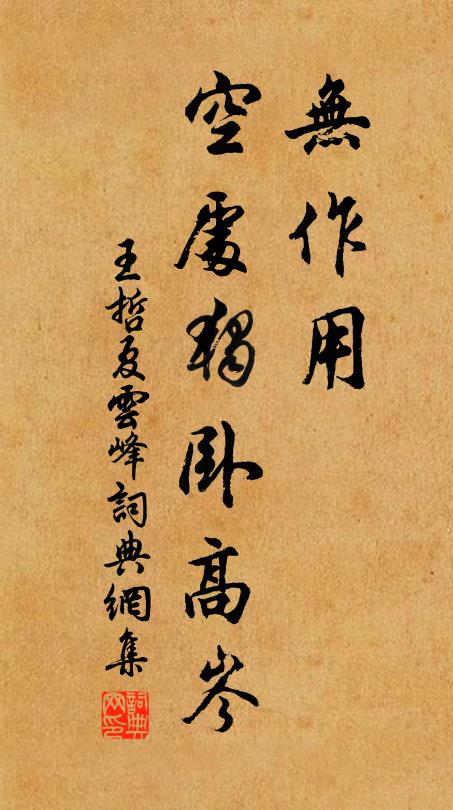 無作用
空處獨卧高岑
王哲夏雲峰詞典網集
詞典
网印